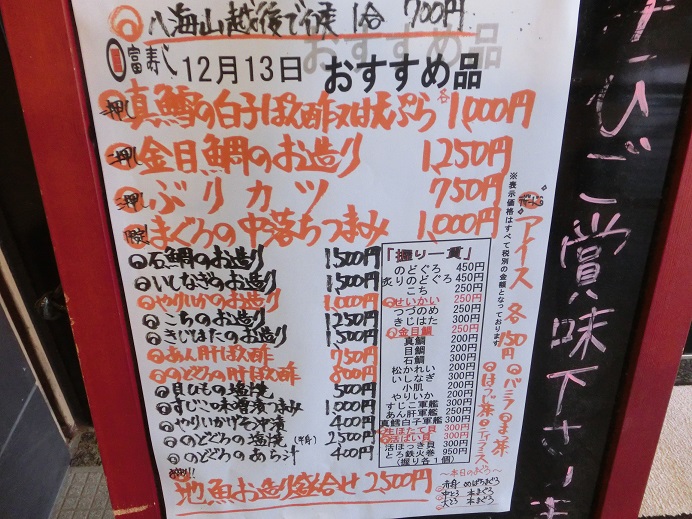 八海山越後で候 1合 700円
富寿し 12月13日 おすすめ品
一押し 真鱈の白子ぽん酢又は天ぷら 各1,000円
二押し 金目鯛のお造り 1,250円
三押し ぶりカツ 750円
まぐろの中落ちつまみ 1,000円
石鯛のお造り 1,500円
いしなぎのお造り 1,500円
やりいかのお造り 1,000円
こちのお造り 1,250円
きじはたのお造り 1,500円
あん肝ぽん酢 750円
のどぐろの肝ぽん酢 800円
貝ひもの塩焼 500円
すじこの味噌漬つまみ 1,000円
やりいかげそ沖漬 400円
のどぐろの塩焼(半身) 2,500円
のどぐろのあら汁 400円
地魚お造り盛合せ 2,500円
「握り一貫」
のどぐろ 450円
炙りのどぐろ 450円
こち 250円
せいかい 250円
つづのめ 250円
きじはた 300円
金目鯛 250円
真鯛 200円
目鯛 200円
石鯛 300円
松かれい 200円
いしなぎ 300円
小肌 200円
やりいか 200円
すじこ軍艦 300円
あん肝軍艦 250円
真鱈白子軍艦 300円
生ほたて貝 300円
活ばい貝 300円
活ほっき貝 300円
とろ鉄火巻 950円
(握り各1個)
※表示価格はすべて税別の金額となっております
アイス 各150円
バニラ
抹茶
ほうじ茶
～本日のまぐろ～
赤身 めばちまぐろ
中とろ 本まぐろ
大とろ 本まぐろ
ぜひご賞味下さいませ